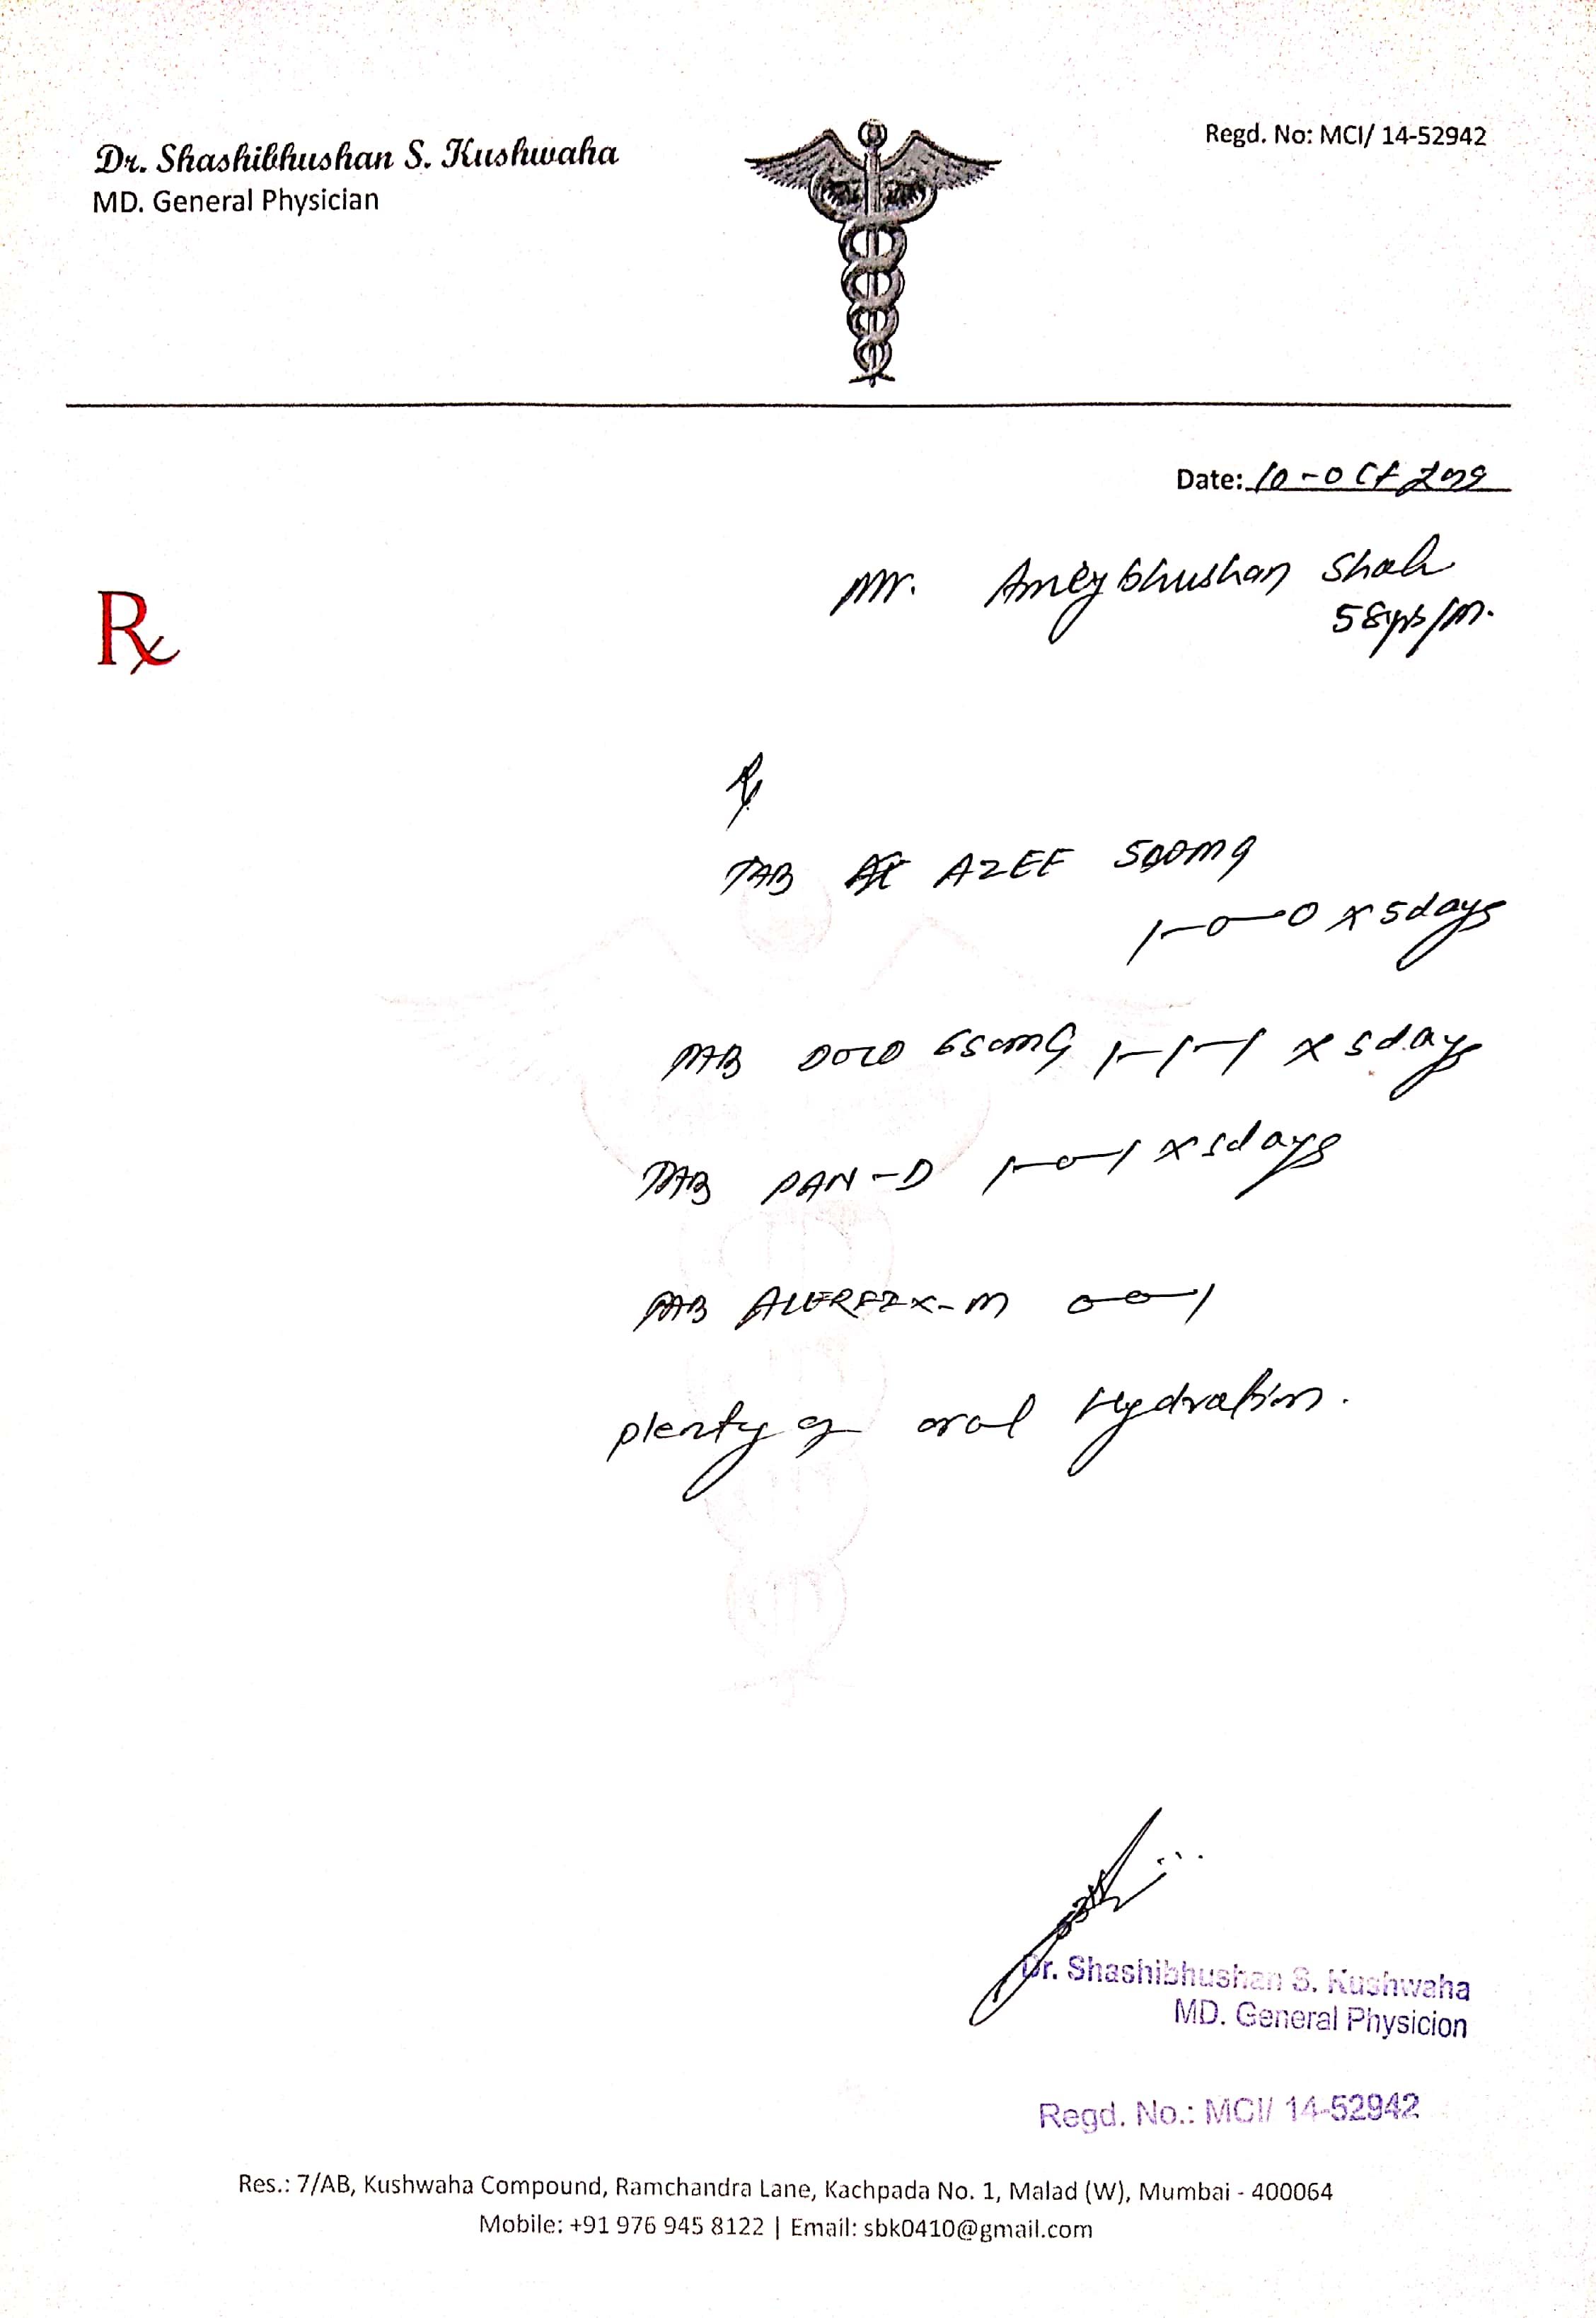 Dr. Shashibhushan S. Kushwaha
MD. General Physician
Regd. No: MCI/ 14-52942
Date: 10-Oct
Rx
Mr. Ameybhushan Shah
58yrs/M.
Rx
TAB AZEE 500mg
1-0-0 x 5days
TAB DOLO 650mG 1-1-1 x 5days
TAB PAN-D 1-0-1 x 5days
TAB ALERFIX-M 0-0-1
plenty of oral Hydration.
Dr. Shashibhushan S. Kushwaha
MD. General Physicion
Regd. No.: MCI/ 14-52942
Res.: 7/AB, Kushwaha Compound, Ramchandra Lane, Kachpada No. 1, Malad (W), Mumbai - 400064
Mobile: +91 976 945 8122 | Email: sbk0410@gmail.com